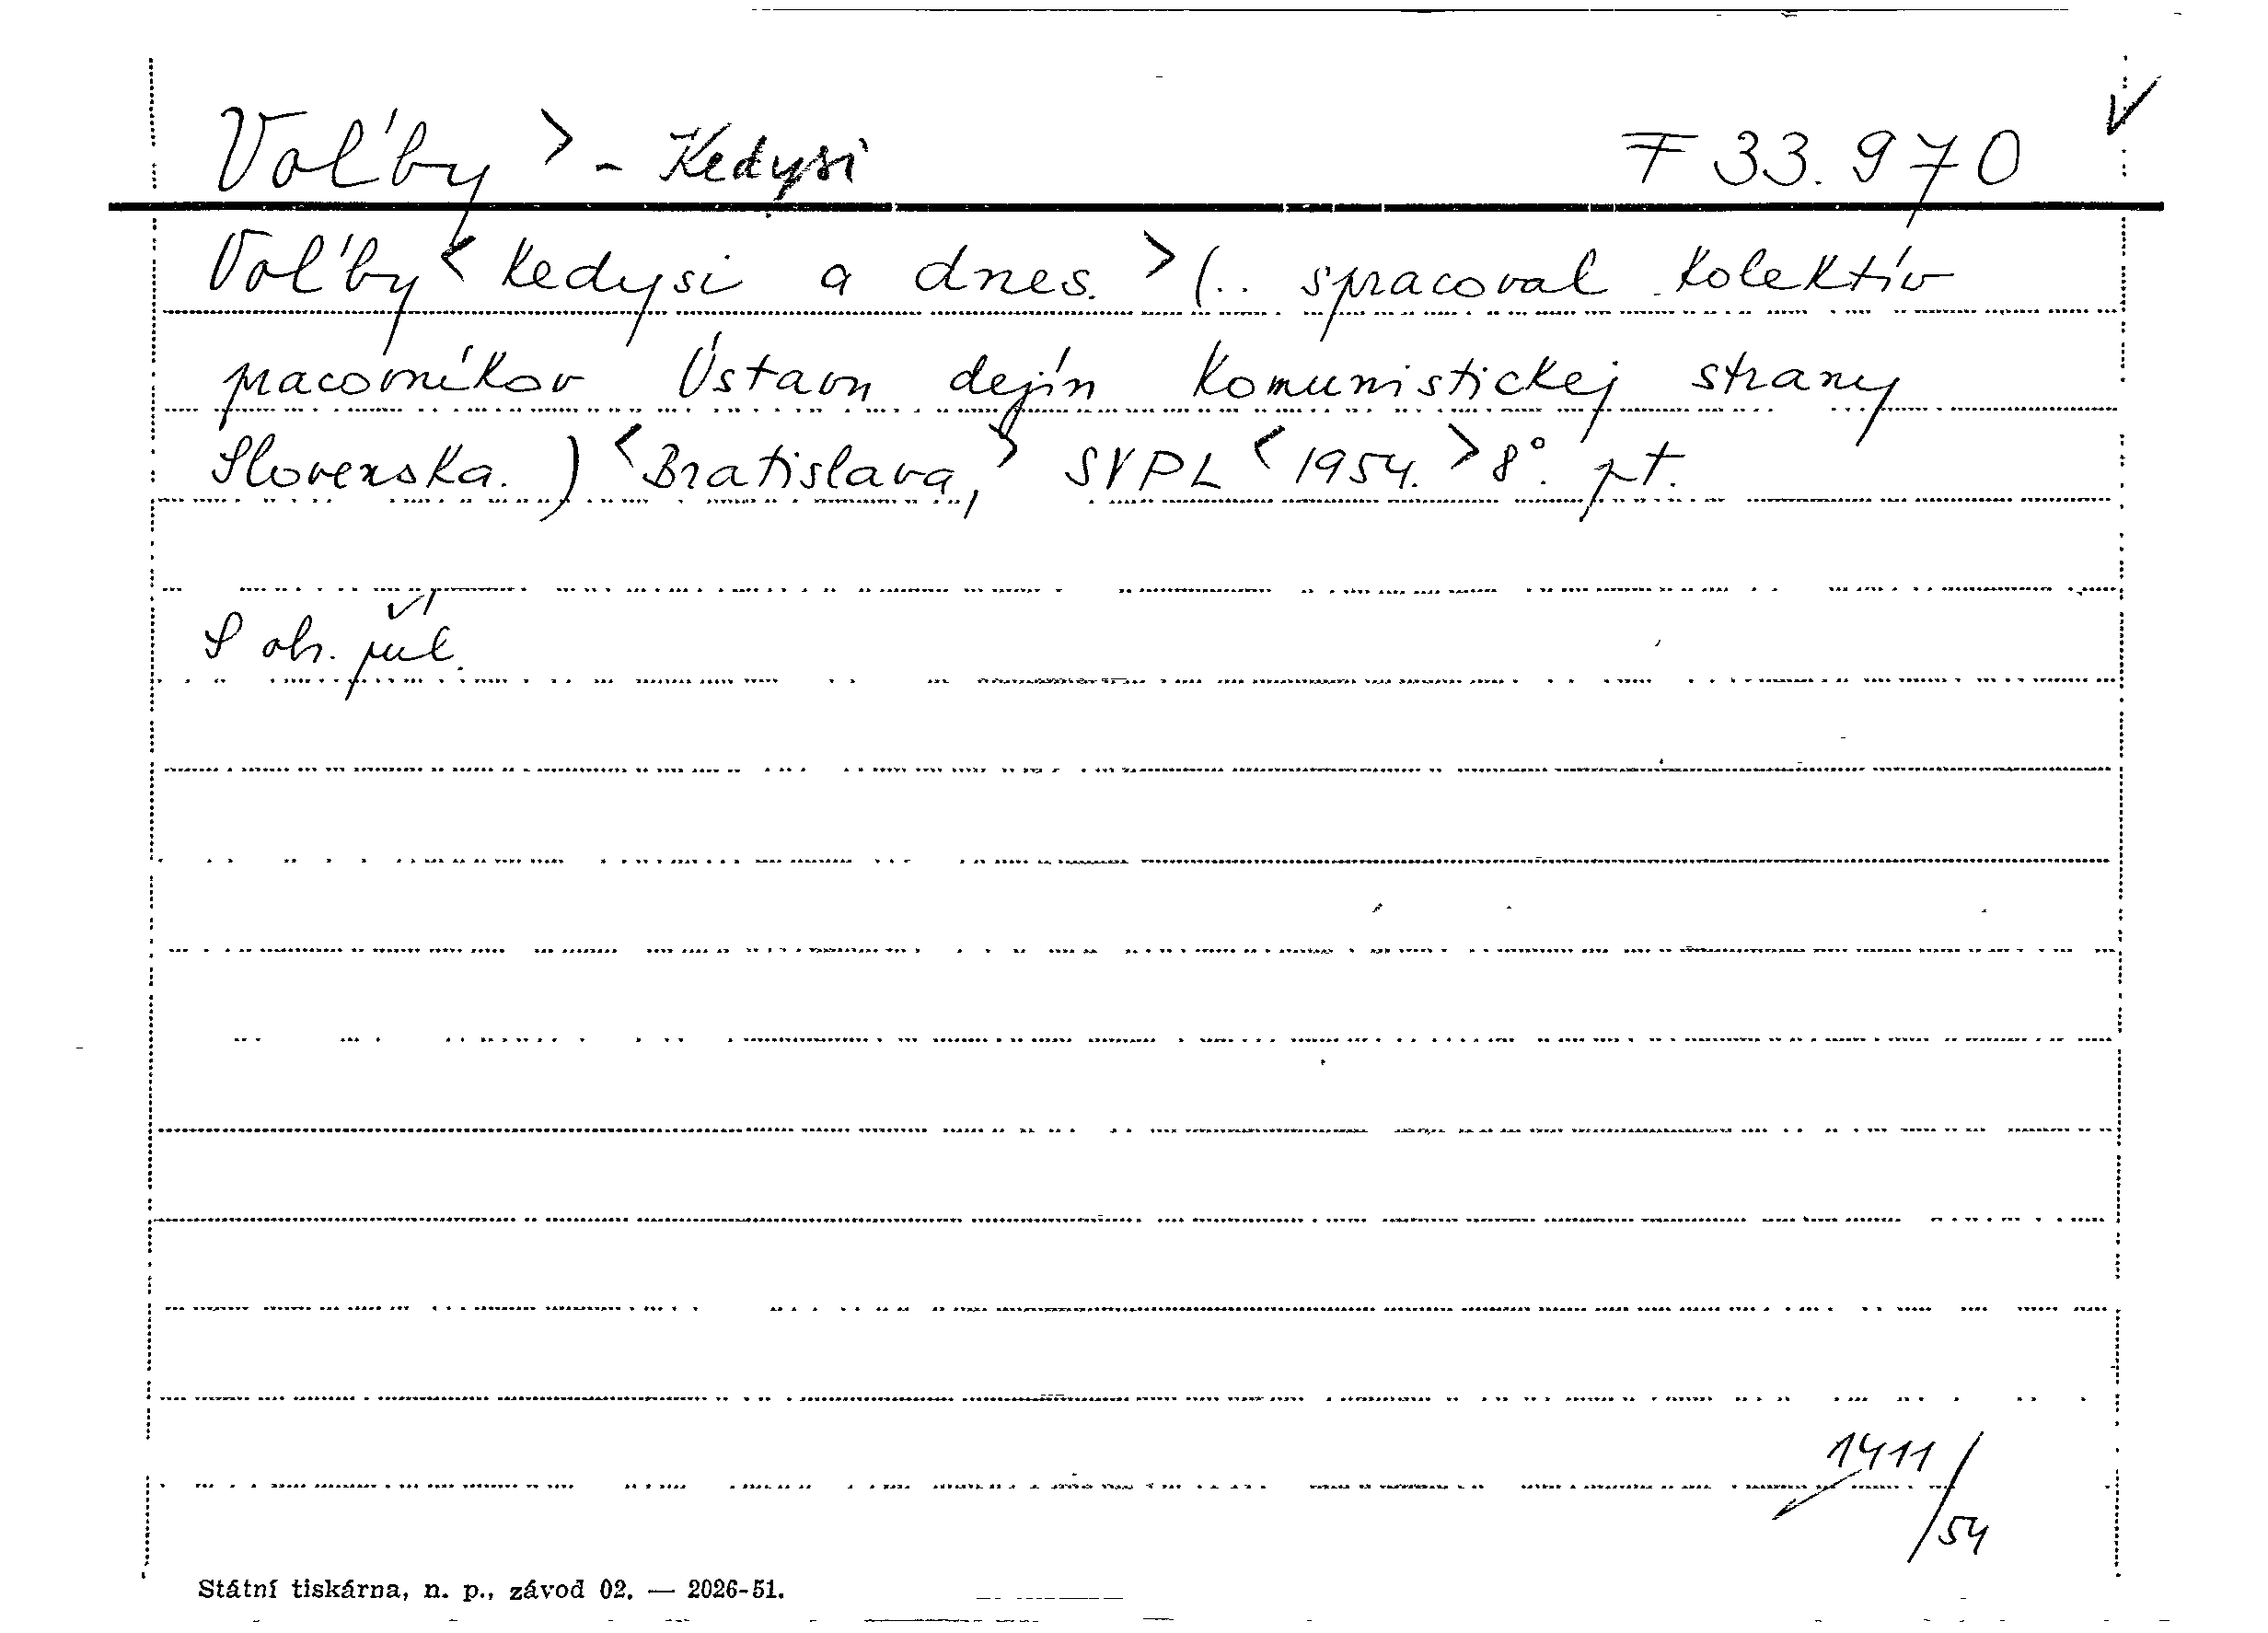 Voľby > - Kedysi F 33.970
Voľby < kedysi a dnes. > (.. spracoval kolektív
pracovníkov Ústavu dejín Komunistickej strany
Slovenska.) < Bratislava, > SVPL < 1954. > 8°. pt.
S obr. příl.
1411/54
Státní tiskárna, n. p., závod 02. — 2026-51.